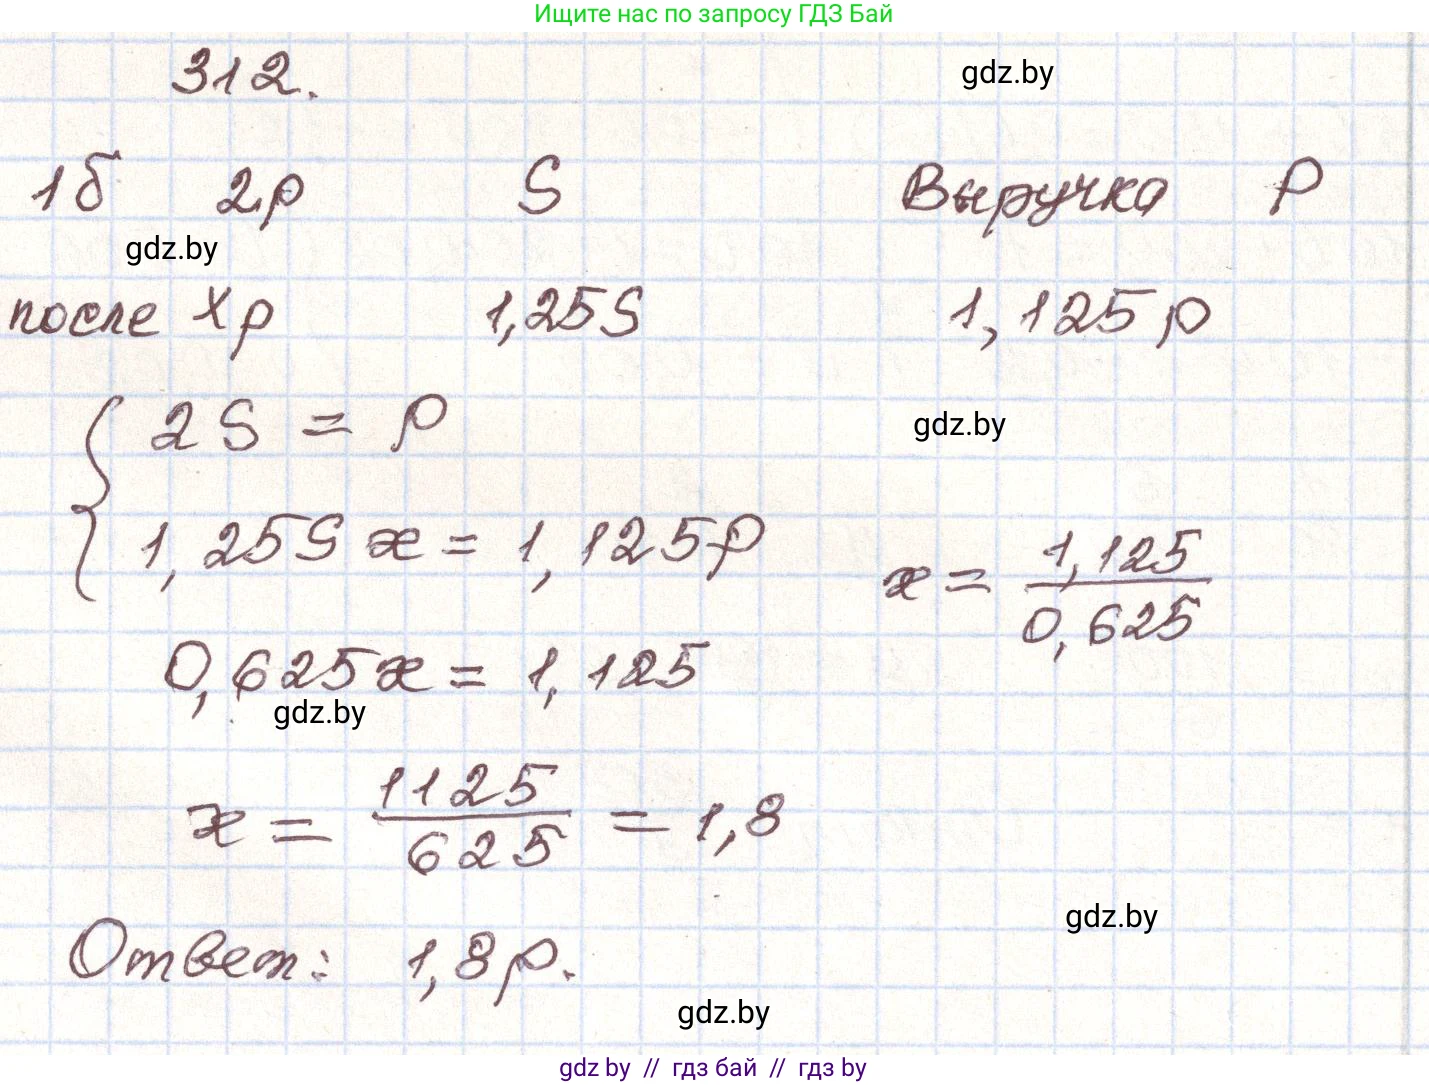 Ищите нас по запросу ГДЗ Бай
312.
gdz.by
1б 2р S Выручка P
gdz.by
после хр 1,25S 1,125р
2S = P
gdz.by
1,25S x = 1,125P
x = 1,125 / 0,625
0,625x = 1,125
gdz.by
x = 1125 / 625 = 1,8
gdz.by
Ответ: 1,8р.
gdz.by
gdz.by // гдз бай // гдз by